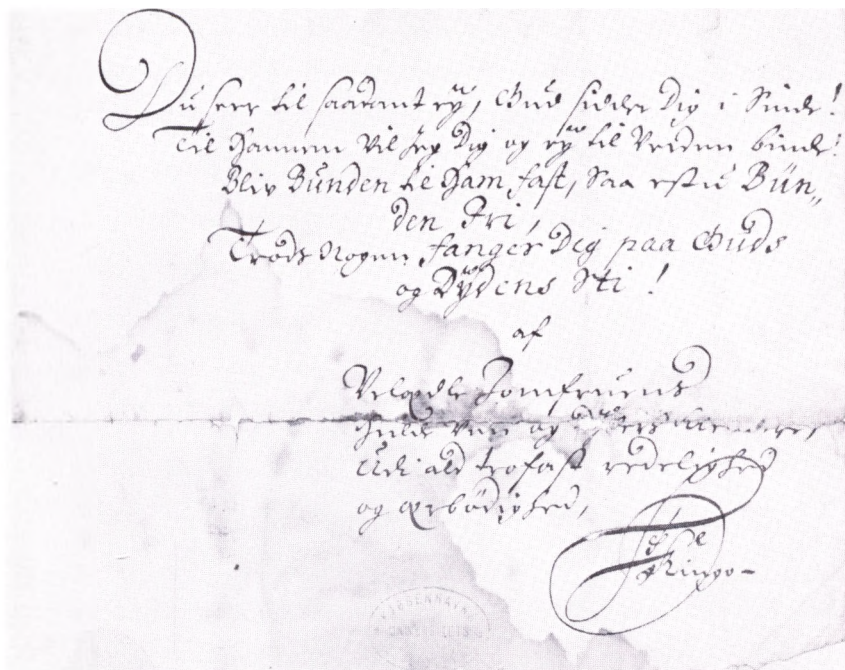 Du seer til saadant eÿ, Gud sidder Dig i Sinde!
Til hannem vil Jeg Dig og eÿ til Verden binde!
Bliv Bunden til Ham fast, Saa estu Bün„
den Fri,
Trods Nogen fanger Dig paa Guds
og Dÿdens Sti!
af
Velædle Jomfruens
og
Udi ald trofast redelighed
og ærbödighed,
Kingo